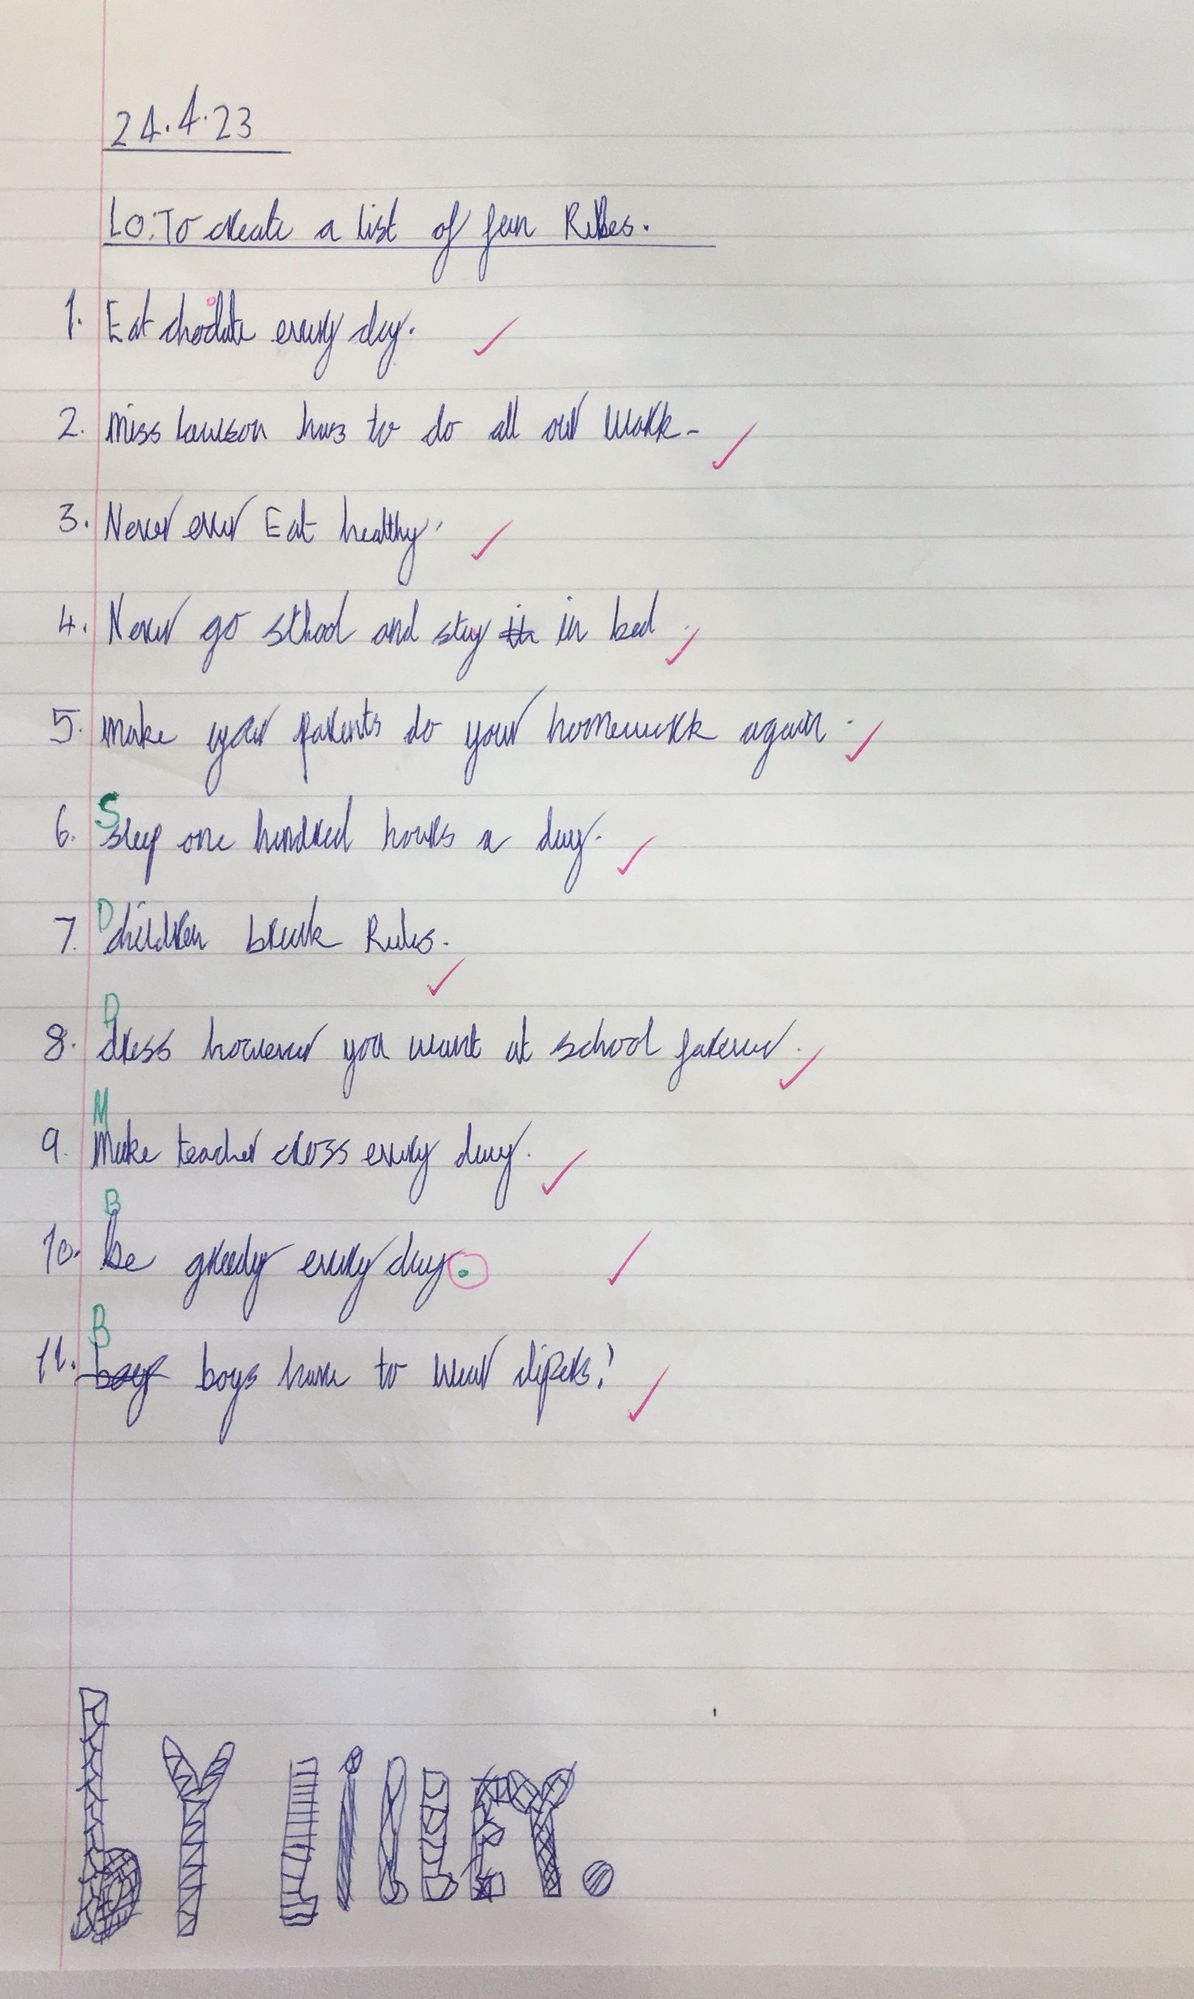 24.4.23
LO: To create a list of fun Rules.
1. Eat choclate every day.
2. Miss Lawson has to do all our work.
3. Never ever Eat healthy.
4. Never go sthool and stay in bed.
5. make your parents do your homework again.
6. Sleep one hundred hours a day.
7. Children break Rules.
8. Dress however you want at school forever.
9. Make teacher cross every day.
10. Be greedy every day.
11. boys have to wear dipers!
by LilLEY.